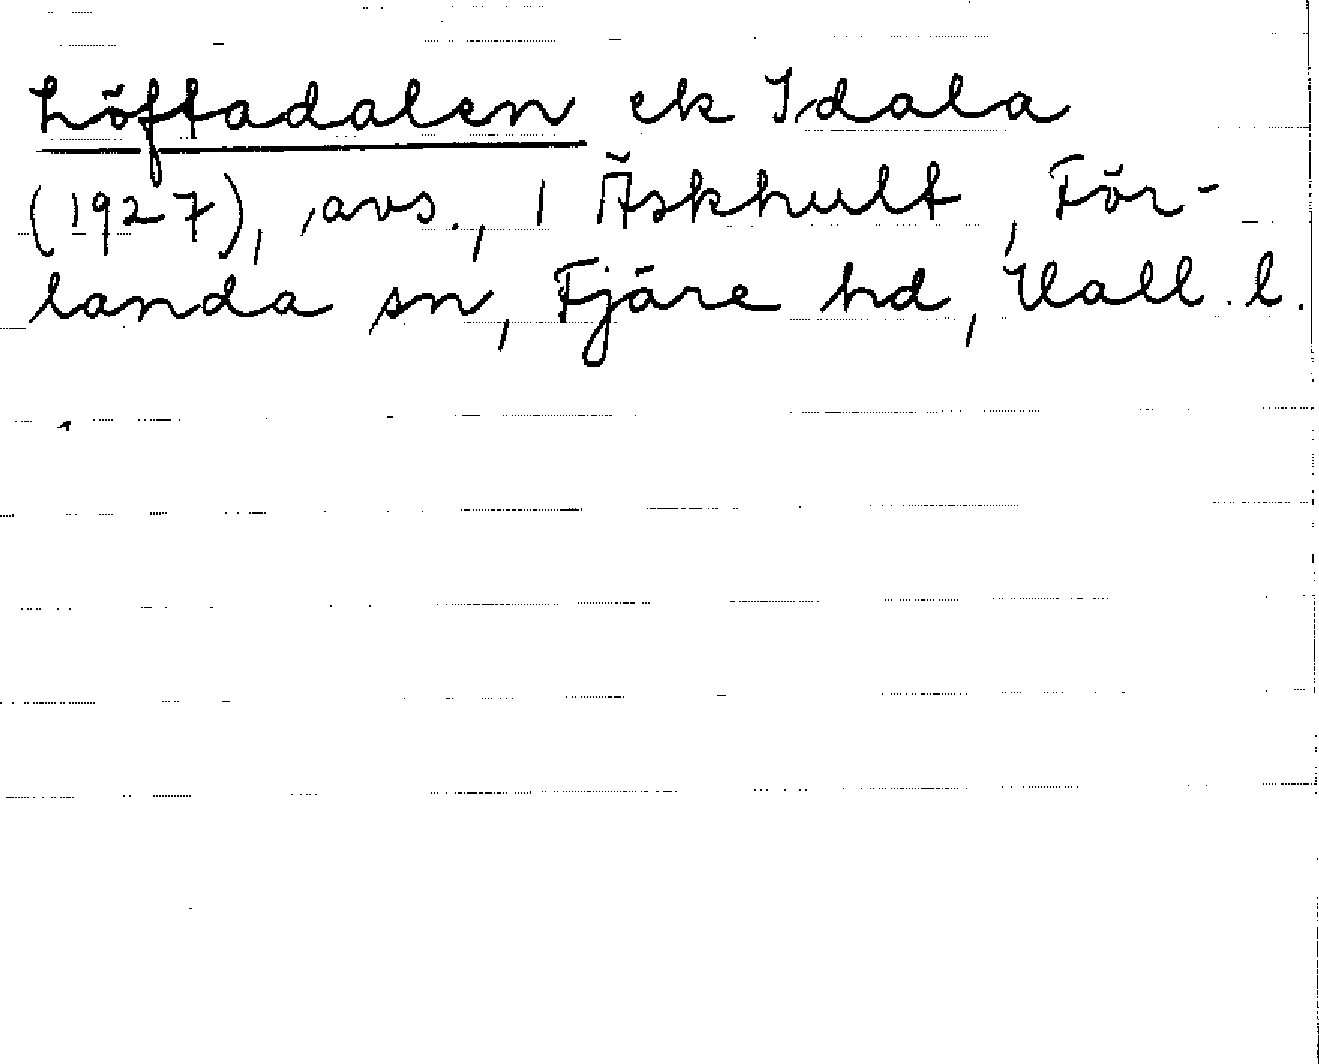 Löftadalen ek Idala
(1927), avs., 1 Äskhult, För-
landa sn, Fjäre hd, Hall. l.